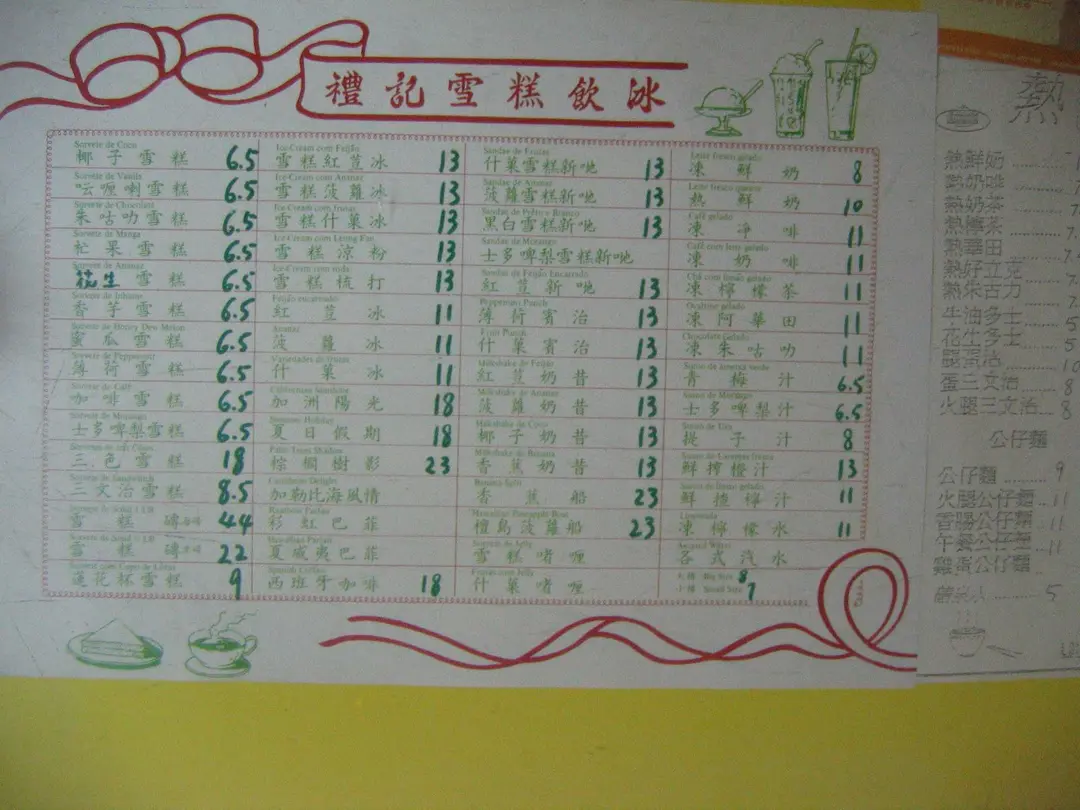 禮記雪糕飲冰
Sorvete de Coco
椰子雪糕 6.5
Sorvete de Vanila
雲喱喇雪糕 6.5
Sorvete de Chocolate
朱咕叻雪糕 6.5
Sorvete de Manga
芒果雪糕 6.5
Sorvete de Ananaz
花生雪糕 6.5
Sorvete de Inhame
香芋雪糕 6.5
Sorvete de Honey Dew Melon
蜜瓜雪糕 6.5
Sorvete de Peppermint
薄荷雪糕 6.5
Sorvete de Café
咖啡雪糕 6.5
Sorvete de Morango
士多啤梨雪糕 6.5
三色雪糕 18
三文治雪糕 8.5
雪糕磚 44
雪糕磚 22
蓮花杯雪糕 9
Ice-Cream com Feijão
雪糕紅荳冰 13
Ice-Cream com Ananaz
雪糕菠蘿冰 13
Ice-Cream com frutas
雪糕什菓冰 13
Ice-Cream com Leung Fan
雪糕涼粉 13
Ice-Cream com soda
雪糕梳打 13
Feijão encarnado
紅荳冰 11
Ananaz
菠蘿冰 11
什菓冰 11
加洲陽光 18
夏日假期 18
棕櫚樹影 23
加勒比海風情
彩虹巴菲
夏威夷巴菲
西班牙咖啡 18
什菓雪糕新地 13
菠蘿雪糕新地 13
黑白雪糕新地 13
士多啤梨雪糕新地
紅荳新地 13
Peppermint Punch
薄荷賓治 13
Fruit Punch
什菓賓治 13
Milkshake de Feijão
紅荳奶昔 13
Milkshake de Ananaz
菠蘿奶昔 13
Milkshake de Coco
椰子奶昔 13
Milkshake de Banana
香蕉奶昔 13
Banana Split
香蕉船 23
檀島菠蘿船 23
雪糕啫喱
什菓啫喱
Leite fresco gelado
凍鮮奶 8
Leite fresco quente
熱鮮奶 10
Café gelado
凍淨啡 11
Café com leite gelado
凍奶啡 11
Chá com limão gelado
凍檸檬茶 11
Ovaltine gelado
凍阿華田 11
Chocolate gelado
凍朱咕叻 11
青梅汁 6.5
士多啤梨汁 6.5
提子汁 8
鮮搾橙汁 13
鮮搾檸汁 11
凍檸檬水 11
各式汽水
大樽 Big Size 8
Small Size 7
熱
熱鮮奶
熱奶啡
熱奶茶
熱檸茶
熱華田
熱好立克
熱朱古力
牛油多士 5
花生多士 5
蛋三文治 8
火腿三文治 8
公仔麵
公仔麵 9
火腿公仔麵 11
香腸公仔麵 11
午餐公仔麵 11
雞蛋公仔麵